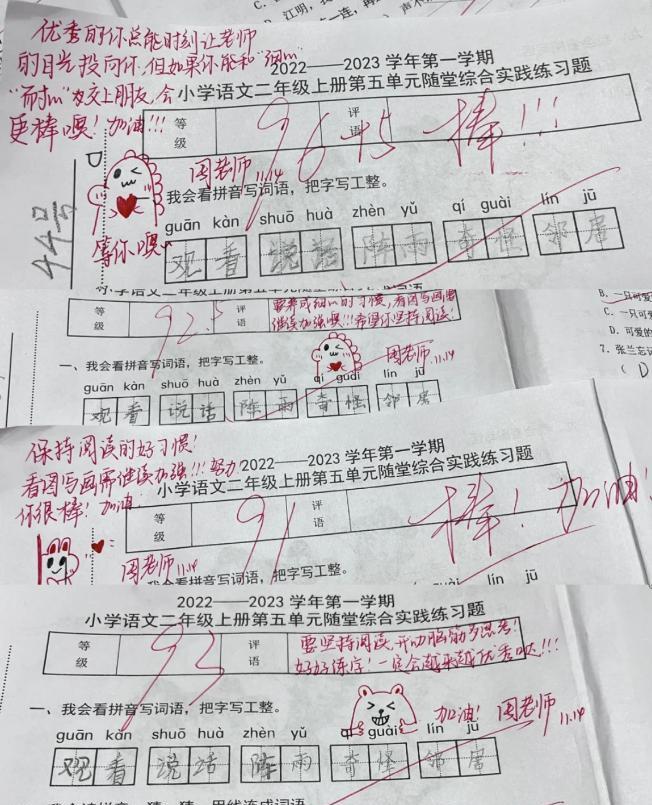 C.
D. 江明，我
优秀的你总能时刻让老师
的目光投向你，但如果你能和"细心"
"耐心"交上朋友，会
更棒噢！加油!!!
2022——2023 学年第一学期
小学语文二年级上册第五单元随堂综合实践练习题
等级
96+5
评语
棒!!!
周老师 11.14
44号
等你噢~
我会看拼音写词语，把字写工整。
guān kàn shuō huà zhèn yǔ qí guài lín jū
观看 说话 阵雨 奇怪 邻居
等级
92.5
评语
要养成细心的习惯，看图写画需
继续加强噢!!!希望你坚持阅读!
周老师 11.14
一、我会看拼音写词语，把字写工整。
guān kàn shuō huà zhèn yǔ qí guài lín jū
观看 说话 阵雨 奇怪 邻居
B. 一只可爱
C. 一只可
D. 可爱的
7. 张兰忘记
( D )
保持阅读的好习惯!
看图写画需继续加强!!!努力
你很棒！加油
2022——2023 学年第一学期
小学语文二年级上册第五单元随堂综合实践练习题
等级
91
评语
棒！加油!
周老师 11.14
我会看拼音写词语，把字写工整。
guài lín jū
2022——2023 学年第一学期
小学语文二年级上册第五单元随堂综合实践练习题
等级
93
评语
要坚持阅读，开动脑筋多思考!
好好练字！一定会越来越优秀哒!!!
加油! 周老师 11.14
一、我会看拼音写词语，把字写工整。
guān kàn shuō huà zhèn yǔ qí guài lín jū
观看 说话 阵雨 奇怪 邻居